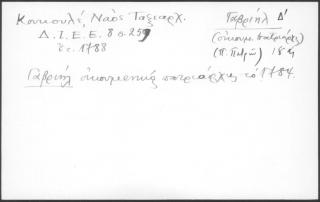 Κουκουλέ, Ναὸς Ταξιαρχ.
Δ.Ι.Ε.Ε. 8 σ. 259
ἔτ. 1788
Γαβριήλ Δ'
(οἰκουμ. πατριάρχης)
(Π. Πατρῶν) 18 αἰ.
Γαβριήλ οἰκουμενικὸς πατριάρχης τὸ 1784.